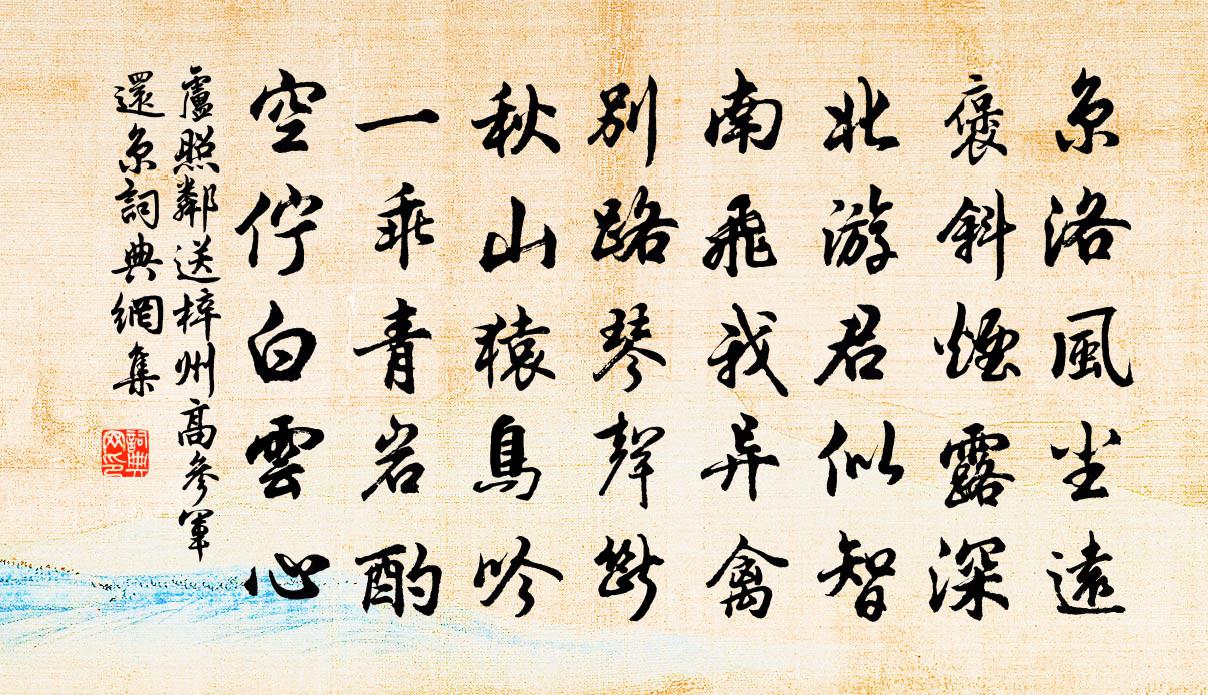 京洛風尘遠
褒斜煙露深
北游君似智
南飛我异禽
别路琴聲斷
秋山猿鳥吟
一乖青岩酌
空佇白雲心
盧照鄰送梓州高參軍
還京詞典網集
詞典